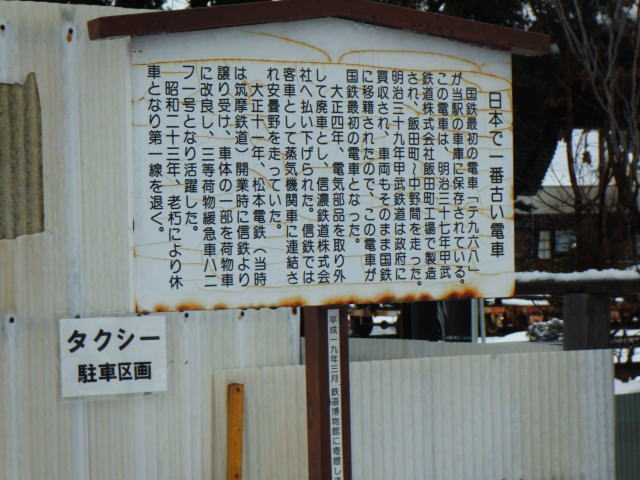 日本で一番古い電車
国鉄最初の電車「デ九六八」
が当駅の車庫に保存されている。
この電車は、明治三十七年甲武
鉄道株式会社飯田町工場で製造
され、飯田町〜中野間を走った。
明治三十九年甲武鉄道は政府に
買収され、車両もそのまま国鉄
に移籍されたので、この電車が
国鉄最初の電車となった。
大正四年、電気部品を取り外
して廃車とし、信濃鉄道株式会
社へ払い下げられた。信鉄では
客車として蒸気機関車に連結さ
れ安曇野を走っていた。
大正十一年、松本電鉄（当時
は筑摩鉄道）開業時に信鉄より
譲り受け、車体の一部を荷物車
に改良し、三等荷物緩急車ハニ
フ一号となり活躍した。
昭和二十三年、老朽により休
車となり第一線を退く。
平成一九年三月、鉄道博物館に寄贈しま
タクシー
駐車区画